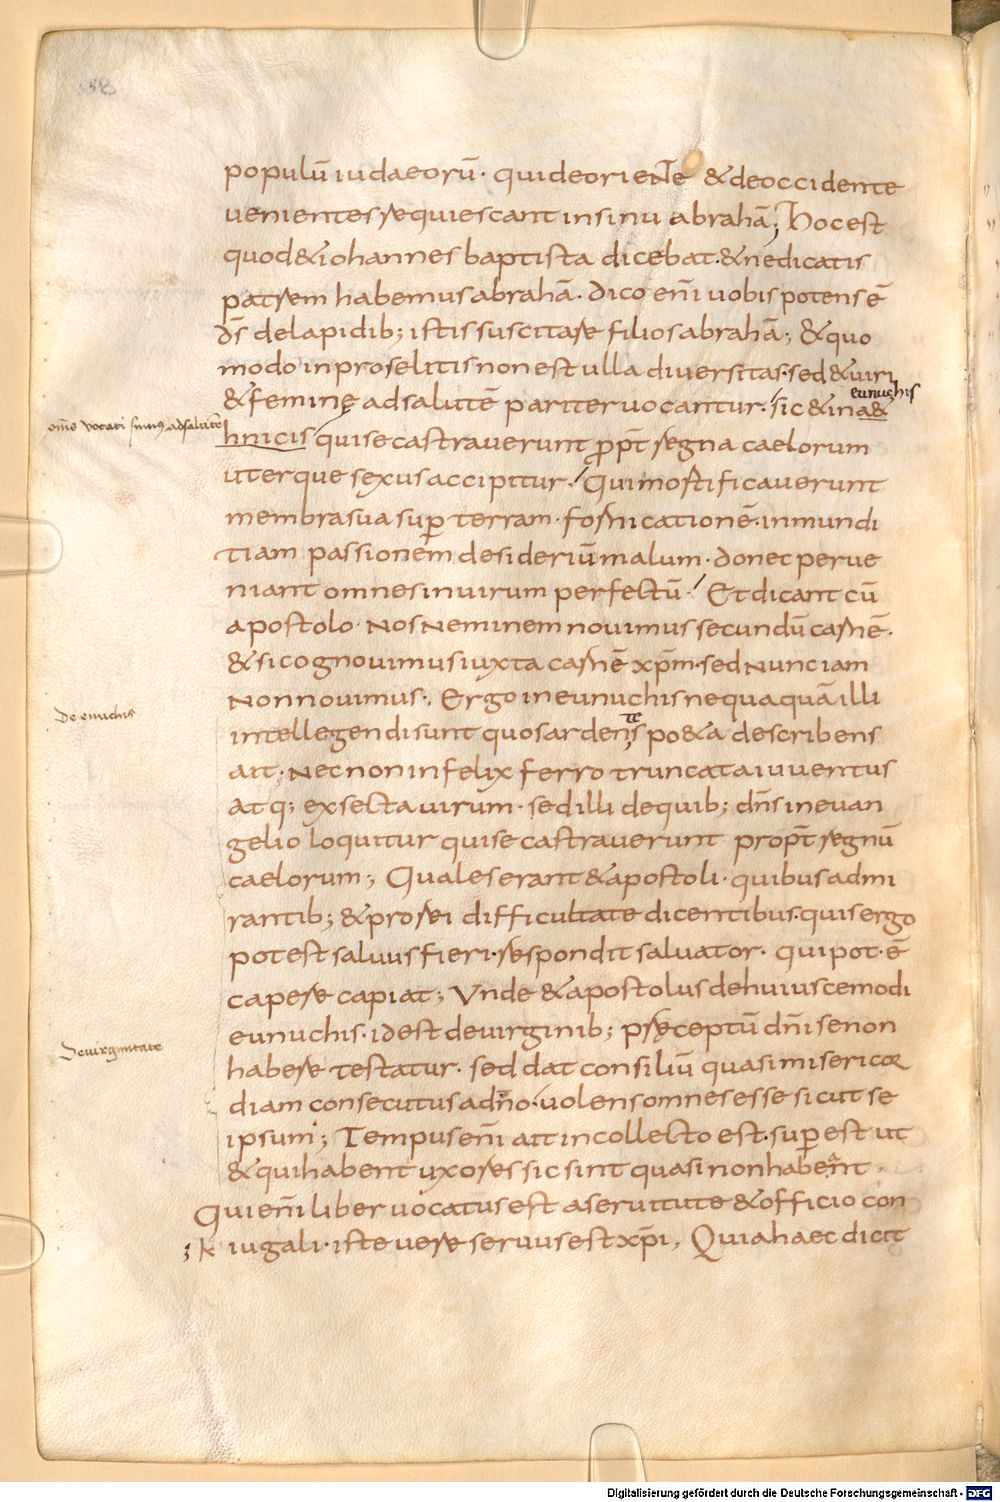 populū iudaeorū· qui de oriente & de occidente
uenientes requiescant in sinu abrahā; Hoc est
quod & iohannes baptista dicebat· & ne dicatis
patrem habemus abrahā· dico enī uobis potens ē
ds̄ de lapidib; istis suscitare filios abrahā; & quo
modo in proselitis non est ulla diuersitas· sed & uiri
eunuchis
& feminę ad salutē pariter uocantur· sic & in a&
om̄s vocati sumus ad salutē
hnicis qui se castrauerunt ppt̄ regna caelorum
uterque sexus accipitur· Qui mortificauerunt
membra sua sup terram· fornicationē· inmundi
tiam passionem desideriū malum· donec perue
niant omnes in uirum perfectū· Et dicant cū
apostolo· Nos neminem nouimus secundū carnē·
& si cognouimus iuxta carnē xp̄m· sed nunc iam
De enuchis
non nouimus·, Ergo in eunuchis nequaquā illi
te
intellegendi sunt quos ardens po&a describens
ait; Nec non infelix ferro truncata iuuentus
atq; exsecta uirum· sed illi de quib; dn̄s in euan
gelio loquitur qui se castrauerunt propt̄ regnū
caelorum; Quales erant & apostoli· quibus admi
rantib; & pro rei difficultate dicentibus· quis ergo
potest saluus fieri· respondit saluator· qui pot· ē
capere capiat; Vnde & apostolus de huiuscemodi
eunuchis· id est de uirginib; pręceptū dn̄i se non
De uirginitate
habere testatur· sed dat consiliū quasi misericor
diam consecutus a dn̄o· uolens omnes esse sicut se
ipsum; Tempus enī ait in collecto est· superest ut
& qui habent uxores sic sint quasi non habent·
Qui enī liber uocatus est a seruitute & officio con
k iugali· iste uere seruus est xp̄i, Quia haec dicit
Digitalisierung gefördert durch die Deutsche Forschungsgemeinschaft - DFG